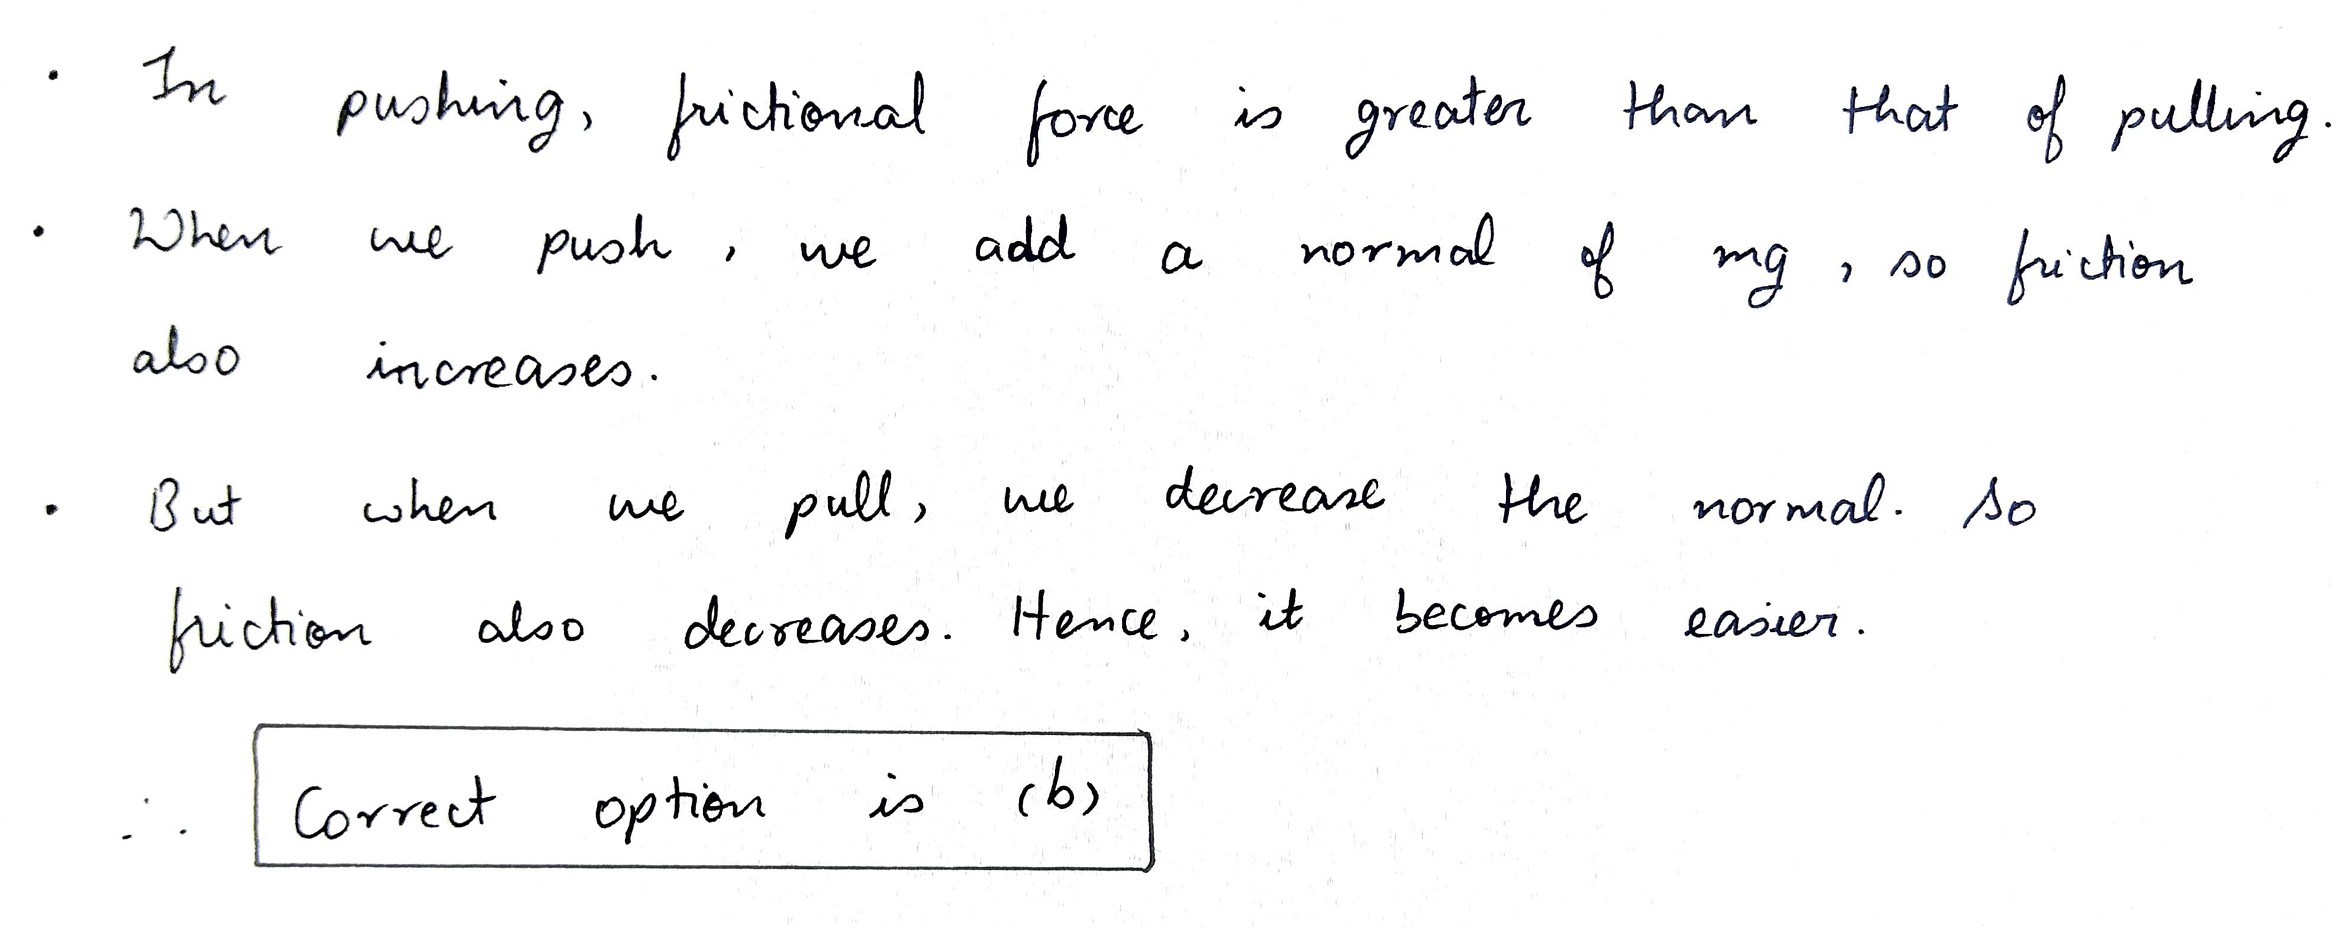 • In pushing, frictional force is greater than that of pulling.
• When we push, we add a normal of mg, so friction
also increases.
• But when we pull, we decrease the normal. So
friction also decreases. Hence, it becomes easier.
∴ Correct option is (b)